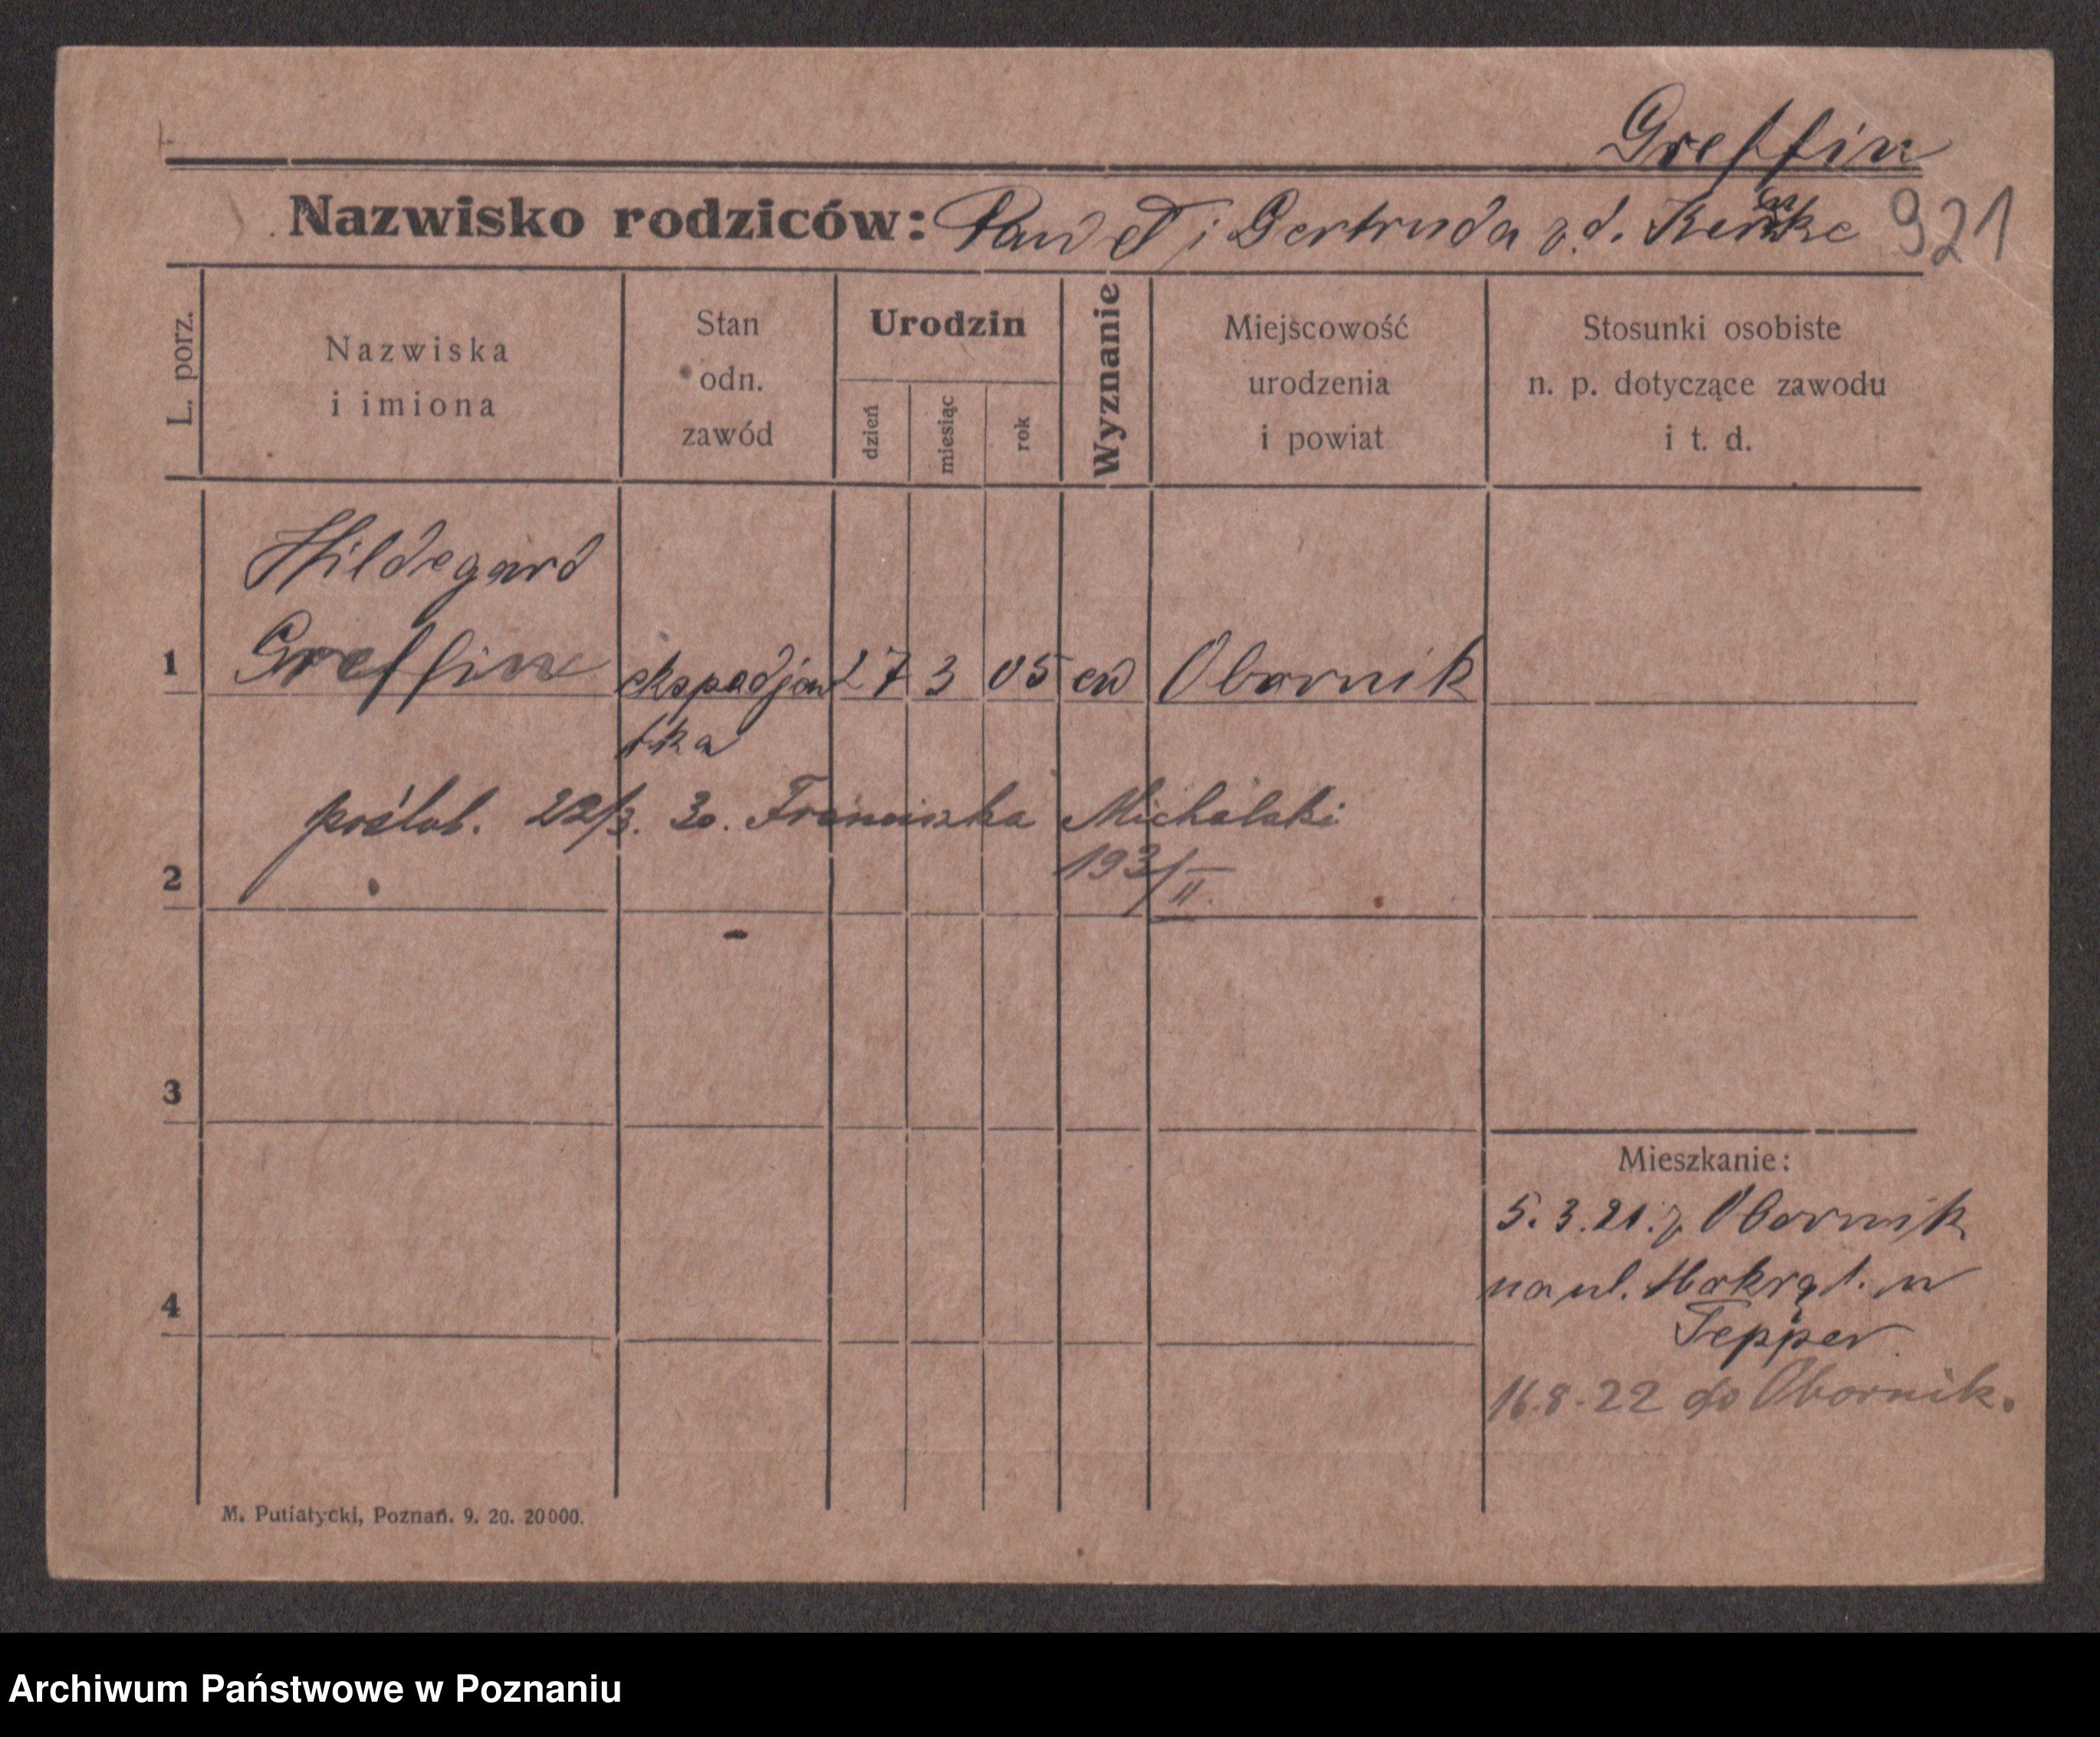 Greffin
Nazwisko rodziców: Paweł i Gertruda z d.
921
L. porz.
Nazwiska
i imiona
Stan
odn.
zawód
Urodzin
dzień
miesiąc
rok
Wyznanie
Miejscowość
urodzenia
i powiat
Stosunki osobiste
n. p. dotyczące zawodu
i t. d.
Hildegard
1 Greffin ekspedjen 27 3 05 ew Obornik
tka
poślub. 22/3. 30. Franciszka Michalski
193/II
2
3
Mieszkanie:
5.3.21. z Obornik
na ul. Mokrą 1. u
4
Tepper
16.8.22 do Obornik.
M. Putiatycki, Poznań. 9. 20. 20000.
Archiwum Państwowe w Poznaniu